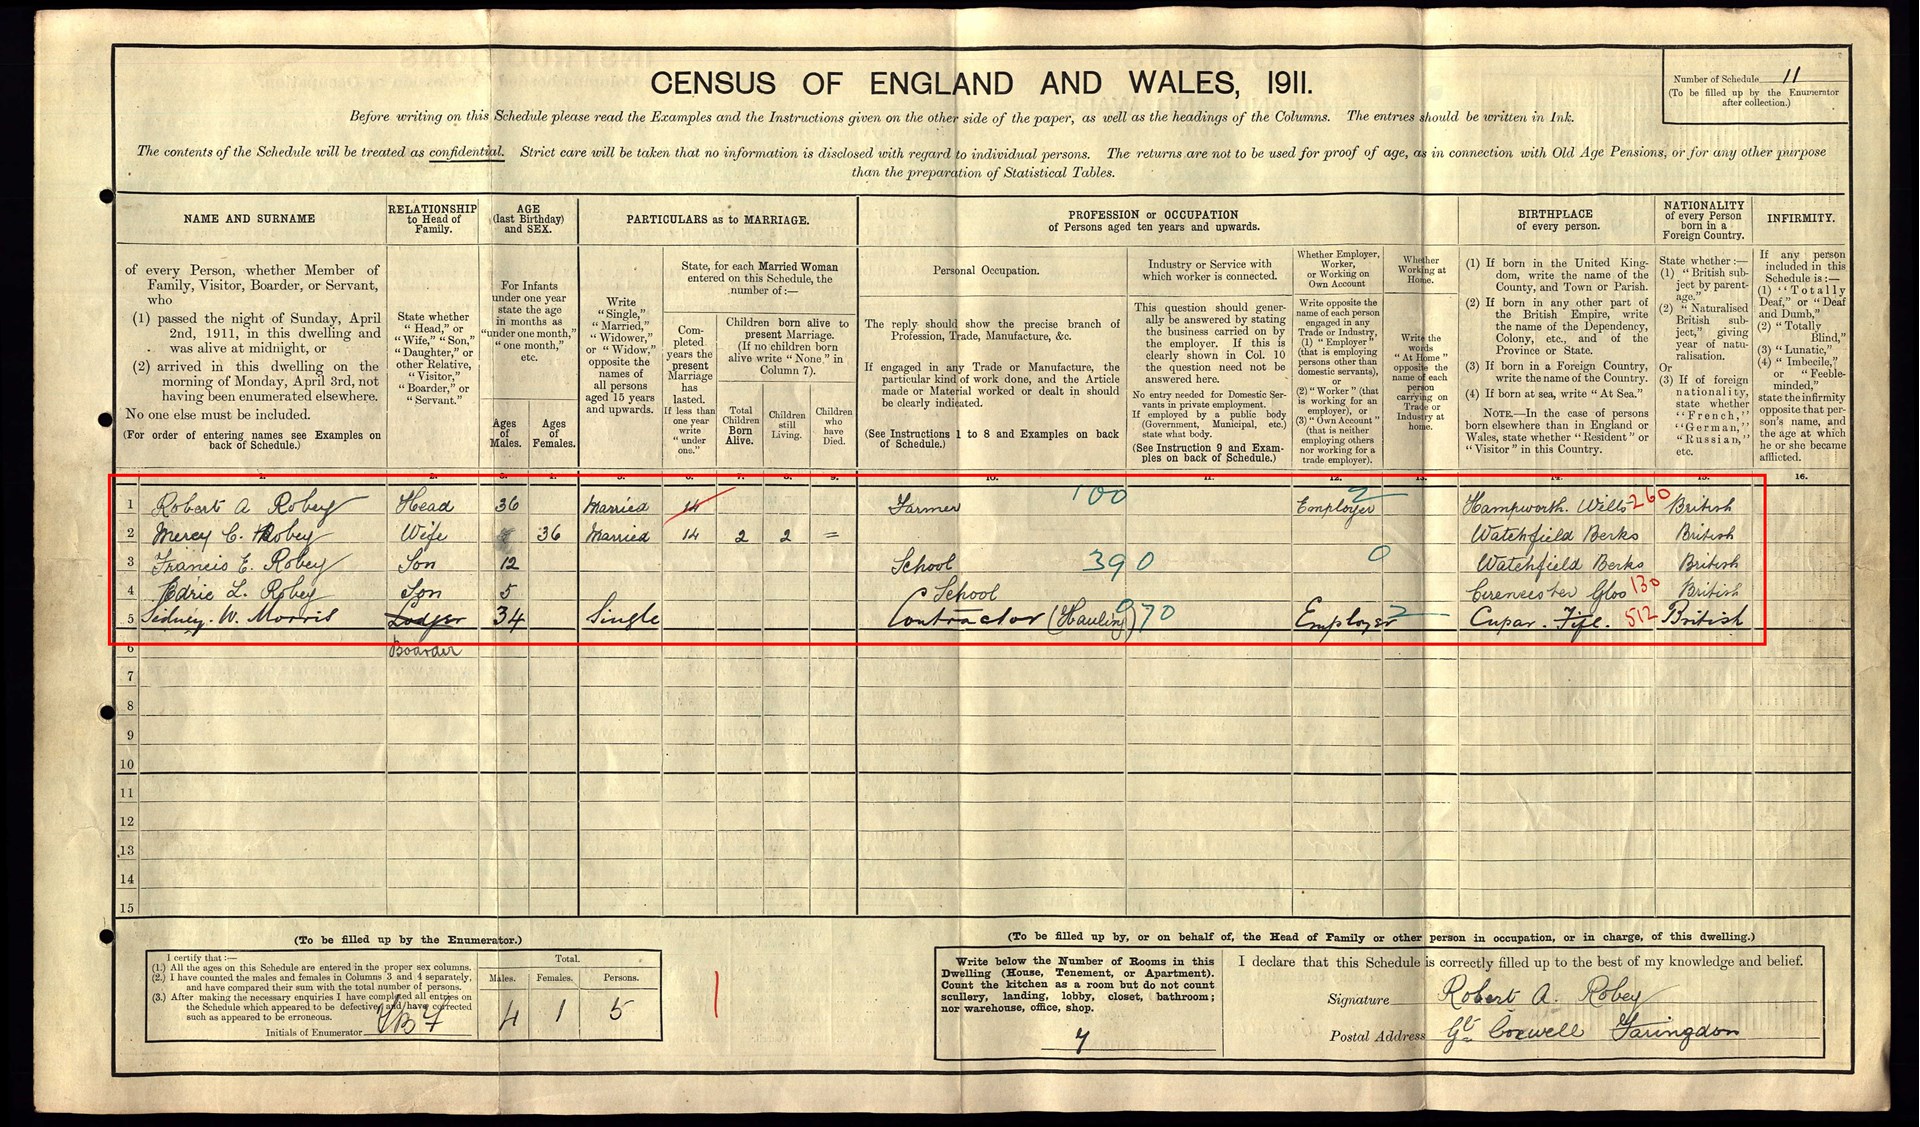 CENSUS OF ENGLAND AND WALES, 1911.
Number of Schedule 11
(To be filled up by the Enumerator
after collection.)
Before writing on this Schedule please read the Examples and the Instructions given on the other side of the paper, as well as the headings of the Columns. The entries should be written in Ink.
The contents of the Schedule will be treated as confidential. Strict care will be taken that no information is disclosed with regard to individual persons. The returns are not to be used for proof of age, as in connection with Old Age Pensions, or for any other purpose
than the preparation of Statistical Tables.
NAME AND SURNAME
of every Person, whether Member of
Family, Visitor, Boarder, or Servant,
who
(1) passed the night of Sunday, April
2nd, 1911, in this dwelling and
was alive at midnight, or
(2) arrived in this dwelling on the
morning of Monday, April 3rd, not
having been enumerated elsewhere.
No one else must be included.
(For order of entering names see Examples on
back of Schedule.)
RELATIONSHIP
to Head of
Family.
State whether
"Head," or
"Wife," "Son,"
"Daughter," or
other Relative,
"Visitor,"
"Boarder," or
"Servant."
AGE
(last Birthday)
and SEX.
For Infants
under one year
state the age
in months as
"under one month,"
"one month,"
etc.
Ages
of
Males.
Ages
of
Females.
PARTICULARS as to MARRIAGE.
Write
"Single,"
"Married,"
"Widower,"
or "Widow,"
opposite the
names of
all persons
aged 15 years
and upwards.
State, for each Married Woman
entered on this Schedule, the
number of:—
Completed
years the
present
Marriage
has
lasted.
If less than
one year
write
"under
one."
Children born alive to
present Marriage.
(If no children born
alive write "None," in
Column 7).
Total
Children
Born
Alive.
Children
still
Living.
Children
who
have
Died.
PROFESSION or OCCUPATION
of Persons aged ten years and upwards.
Personal Occupation.
The reply should show the precise branch of
Profession, Trade, Manufacture, &c.
If engaged in any Trade or Manufacture, the
particular kind of work done, and the Article
made or Material worked or dealt in should
be clearly indicated.
(See Instructions 1 to 8 and Examples on back
of Schedule.)
Industry or Service with
which worker is connected.
This question should gener-
ally be answered by stating
the business carried on by
the employer. If this is
clearly shown in Col. 10
the question need not be
answered here.
No entry needed for Domestic Ser-
vants in private employment.
If employed by a public body
(Government, Municipal, etc.)
state what body.
(See Instruction 9 and Exam-
ples on back of Schedule.)
Whether Employer,
Worker,
or Working on
Own Account
Write opposite the
name of each person
engaged in any
Trade or Industry,
(1) "Employer"
(that is employing
persons other than
domestic servants),
or
(2) "Worker" (that
is working for an
employer), or
(3) "Own Account"
(that is neither
employing others
nor working for a
trade employer).
Whether
Working at
Home.
Write the
words
"At Home"
opposite the
name of each
person
carrying on
Trade or
Industry at
home.
BIRTHPLACE
of every person.
(1) If born in the United King-
dom, write the name of the
County, and Town or Parish.
(2) If born in any other part of
the British Empire, write
the name of the Dependency,
Colony, etc., and of the
Province or State.
(3) If born in a Foreign Country,
write the name of the Country.
(4) If born at sea, write "At Sea."
NOTE.—In the case of persons
born elsewhere than in England or
Wales, state whether "Resident" or
"Visitor" in this Country.
NATIONALITY
of every Person
born in a
Foreign Country.
State whether:—
(1) "British sub-
ject by parent-
age."
(2) "Naturalised
British sub-
ject," giving
year of natu-
ralisation.
Or
(3) If of foreign
nationality,
state whether
"French,"
"German,"
"Russian,"
etc.
INFIRMITY.
If any person
included in this
Schedule is:—
(1) "Totally
Deaf," or "Deaf
and Dumb,"
(2) "Totally
Blind,"
(3) "Lunatic,"
(4) "Imbecile,"
or "Feeble-
minded,"
state the infirmity
opposite that per-
son's name, and
the age at which
he or she became
afflicted.
1 Robert A Robey Head 36 Married 14 Farmer 100 Employer 2 Hampworth. Wilts 260 British
2 Mercy C. Robey Wife 36 Married 14 2 2 = Watchfield Berks British
3 Francis E. Robey Son 12 School 390 0 Watchfield Berks British
4 Edric L. Robey Son 5 School Cirencester Glos 130 British
5 Sidney. W. Morris Lodger 34 Single Contractor (Hauling) 970 Employer 2 Cupar. Fife. 512 British
6 Boarder
7
8
9
10
11
12
13
14
15
(To be filled up by the Enumerator.)
I certify that:—
(1.) All the ages on this Schedule are entered in the proper sex columns.
(2.) I have counted the males and females in Columns 3 and 4 separately,
and have compared their sum with the total number of persons.
(3.) After making the necessary enquiries I have completed all entries on
the Schedule which appeared to be defective, and have corrected
such as appeared to be erroneous.
Initials of Enumerator
Total.
Males. Females. Persons.
4 1 5
(To be filled up by, or on behalf of, the Head of Family or other person in occupation, or in charge, of this dwelling.)
Write below the Number of Rooms in this
Dwelling (House, Tenement, or Apartment).
Count the kitchen as a room but do not count
scullery, landing, lobby, closet, bathroom;
nor warehouse, office, shop.
7
I declare that this Schedule is correctly filled up to the best of my knowledge and belief.
Signature Robert A. Robey
Postal Address Gt. Coxwell Faringdon